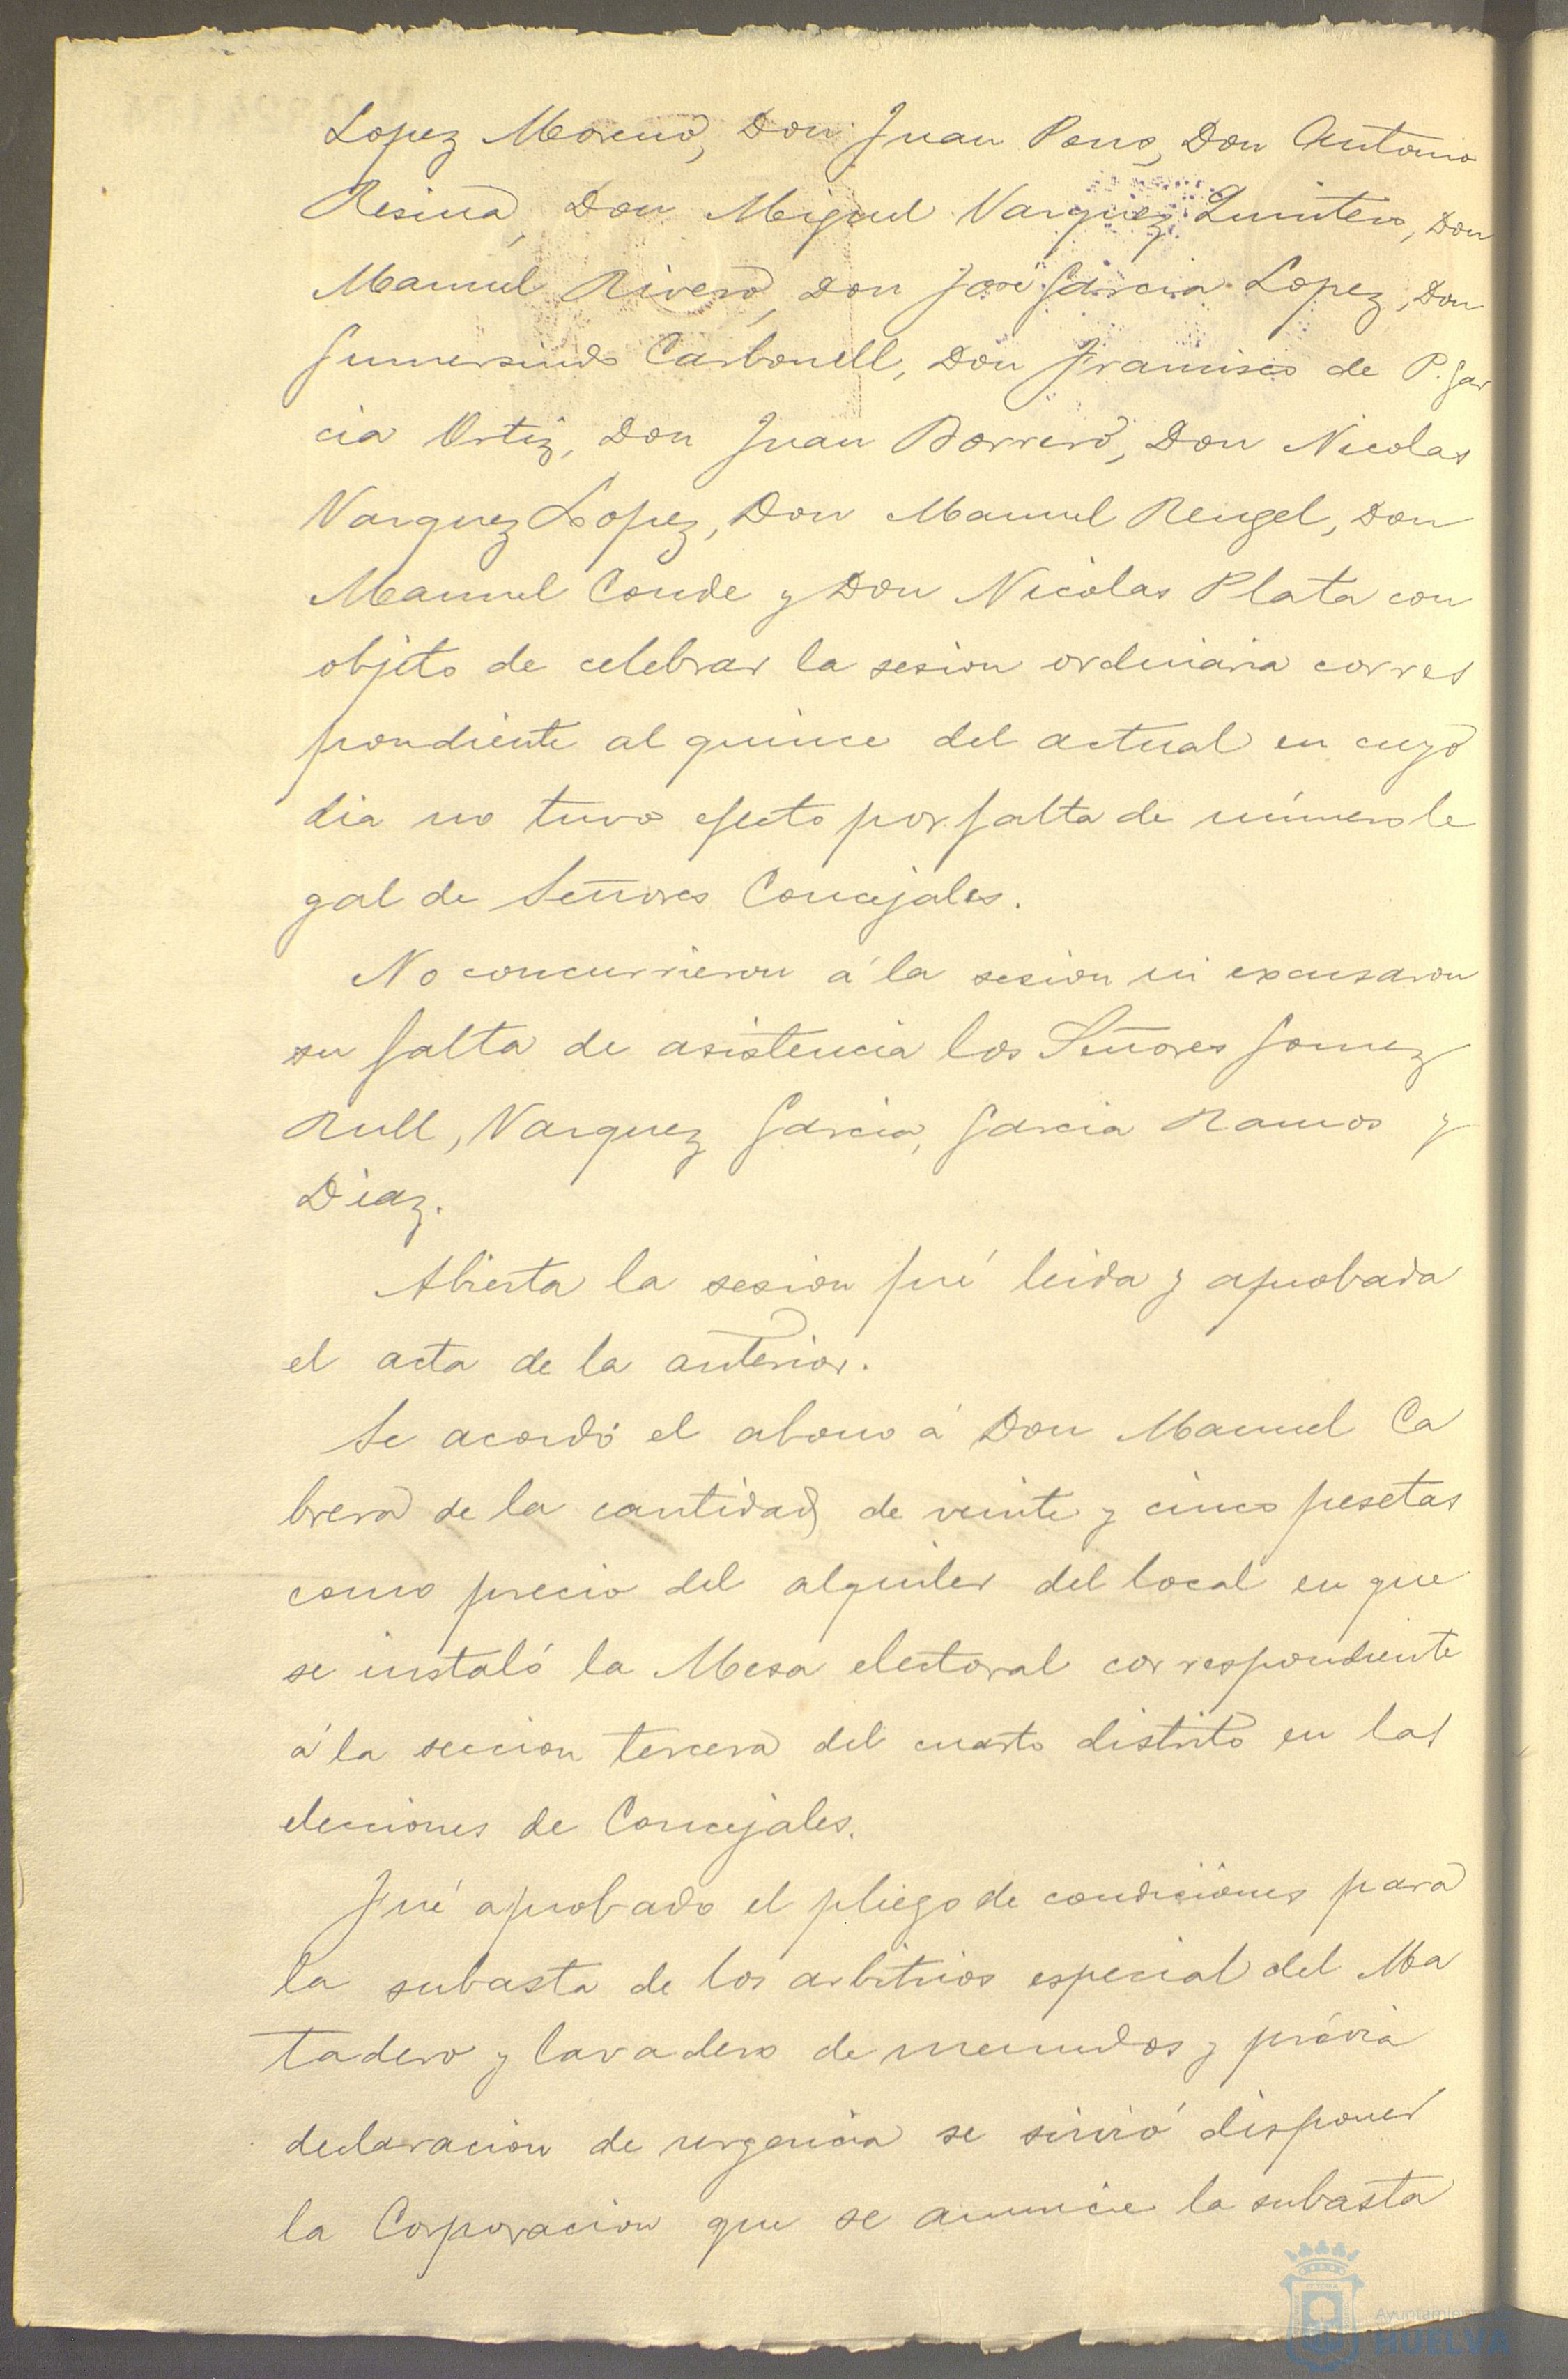 Lopez Moreno, Don Juan Pons, Don Antonio
Resina, Don Miguel Vazquez Quintero, Don
Manuel Rivero, Don José Garcia Lopez, Don
Gumersindo Carbonell, Don Francisco de P. Gar
cia Ortiz, Don Juan Borrero, Don Nicolas
Vazquez Lopez, Don Manuel Rengel, Don
Manuel Conde y Don Nicolas Plata con
objeto de celebrar la sesion ordinaria corres
pondiente al quince del actual en cuyo
dia no tuvo efecto por falta de número le
gal de Señores Concejales.
No concurrieron á la sesion ni excusaron
su falta de asistencia los Señores Gomez
Rull, Vazquez Garcia, Garcia Ramos y
Diaz.
Abierta la sesion fué leida y aprobada
el acta de la anterior.
Se acordó el abono á Don Manuel Ca
brera de la cantidad de veinte y cinco pesetas
como precio del alquiler del local en que
se instaló la Mesa electoral correspondiente
á la seccion tercera del cuarto distrito en las
elecciones de Concejales.
Fué aprobado el pliego de condiciones para
la subasta de los arbitrios especial del Ma
tadero y lavadero de menudos y prévia
declaracion de urgencia se sirvió disponer
la Corporacion que se anuncie la subasta
Ayuntamiento
HUELVA